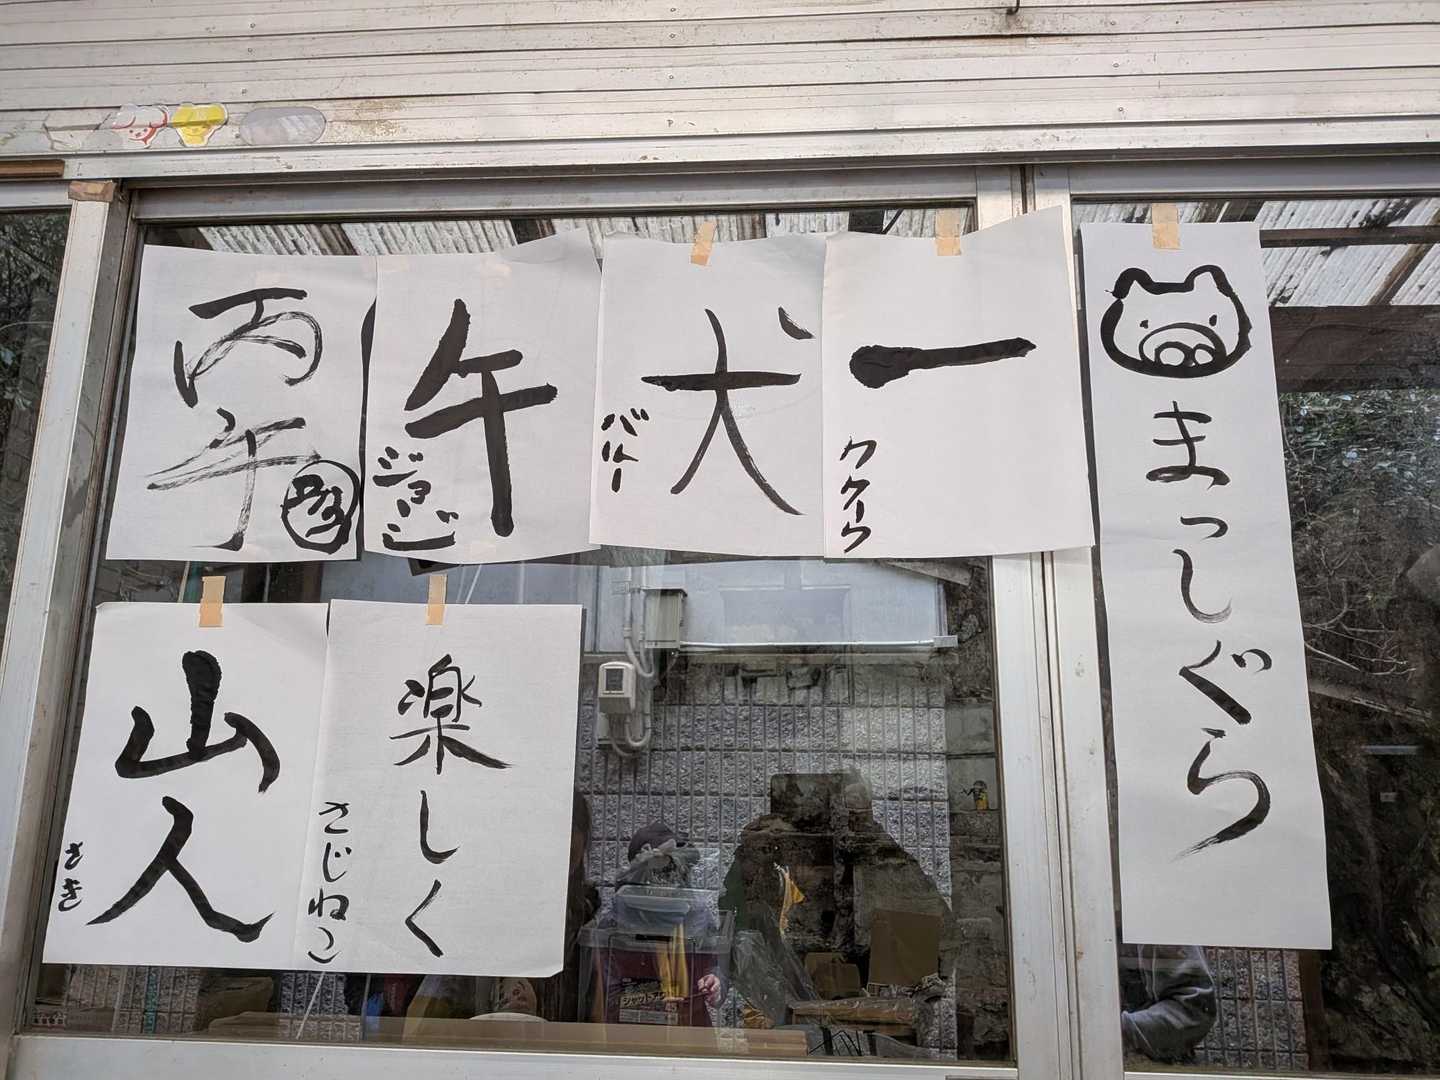 丙午
午
ジョージ
犬
一
まっしぐら
山人
さき
楽しく
さじねこ